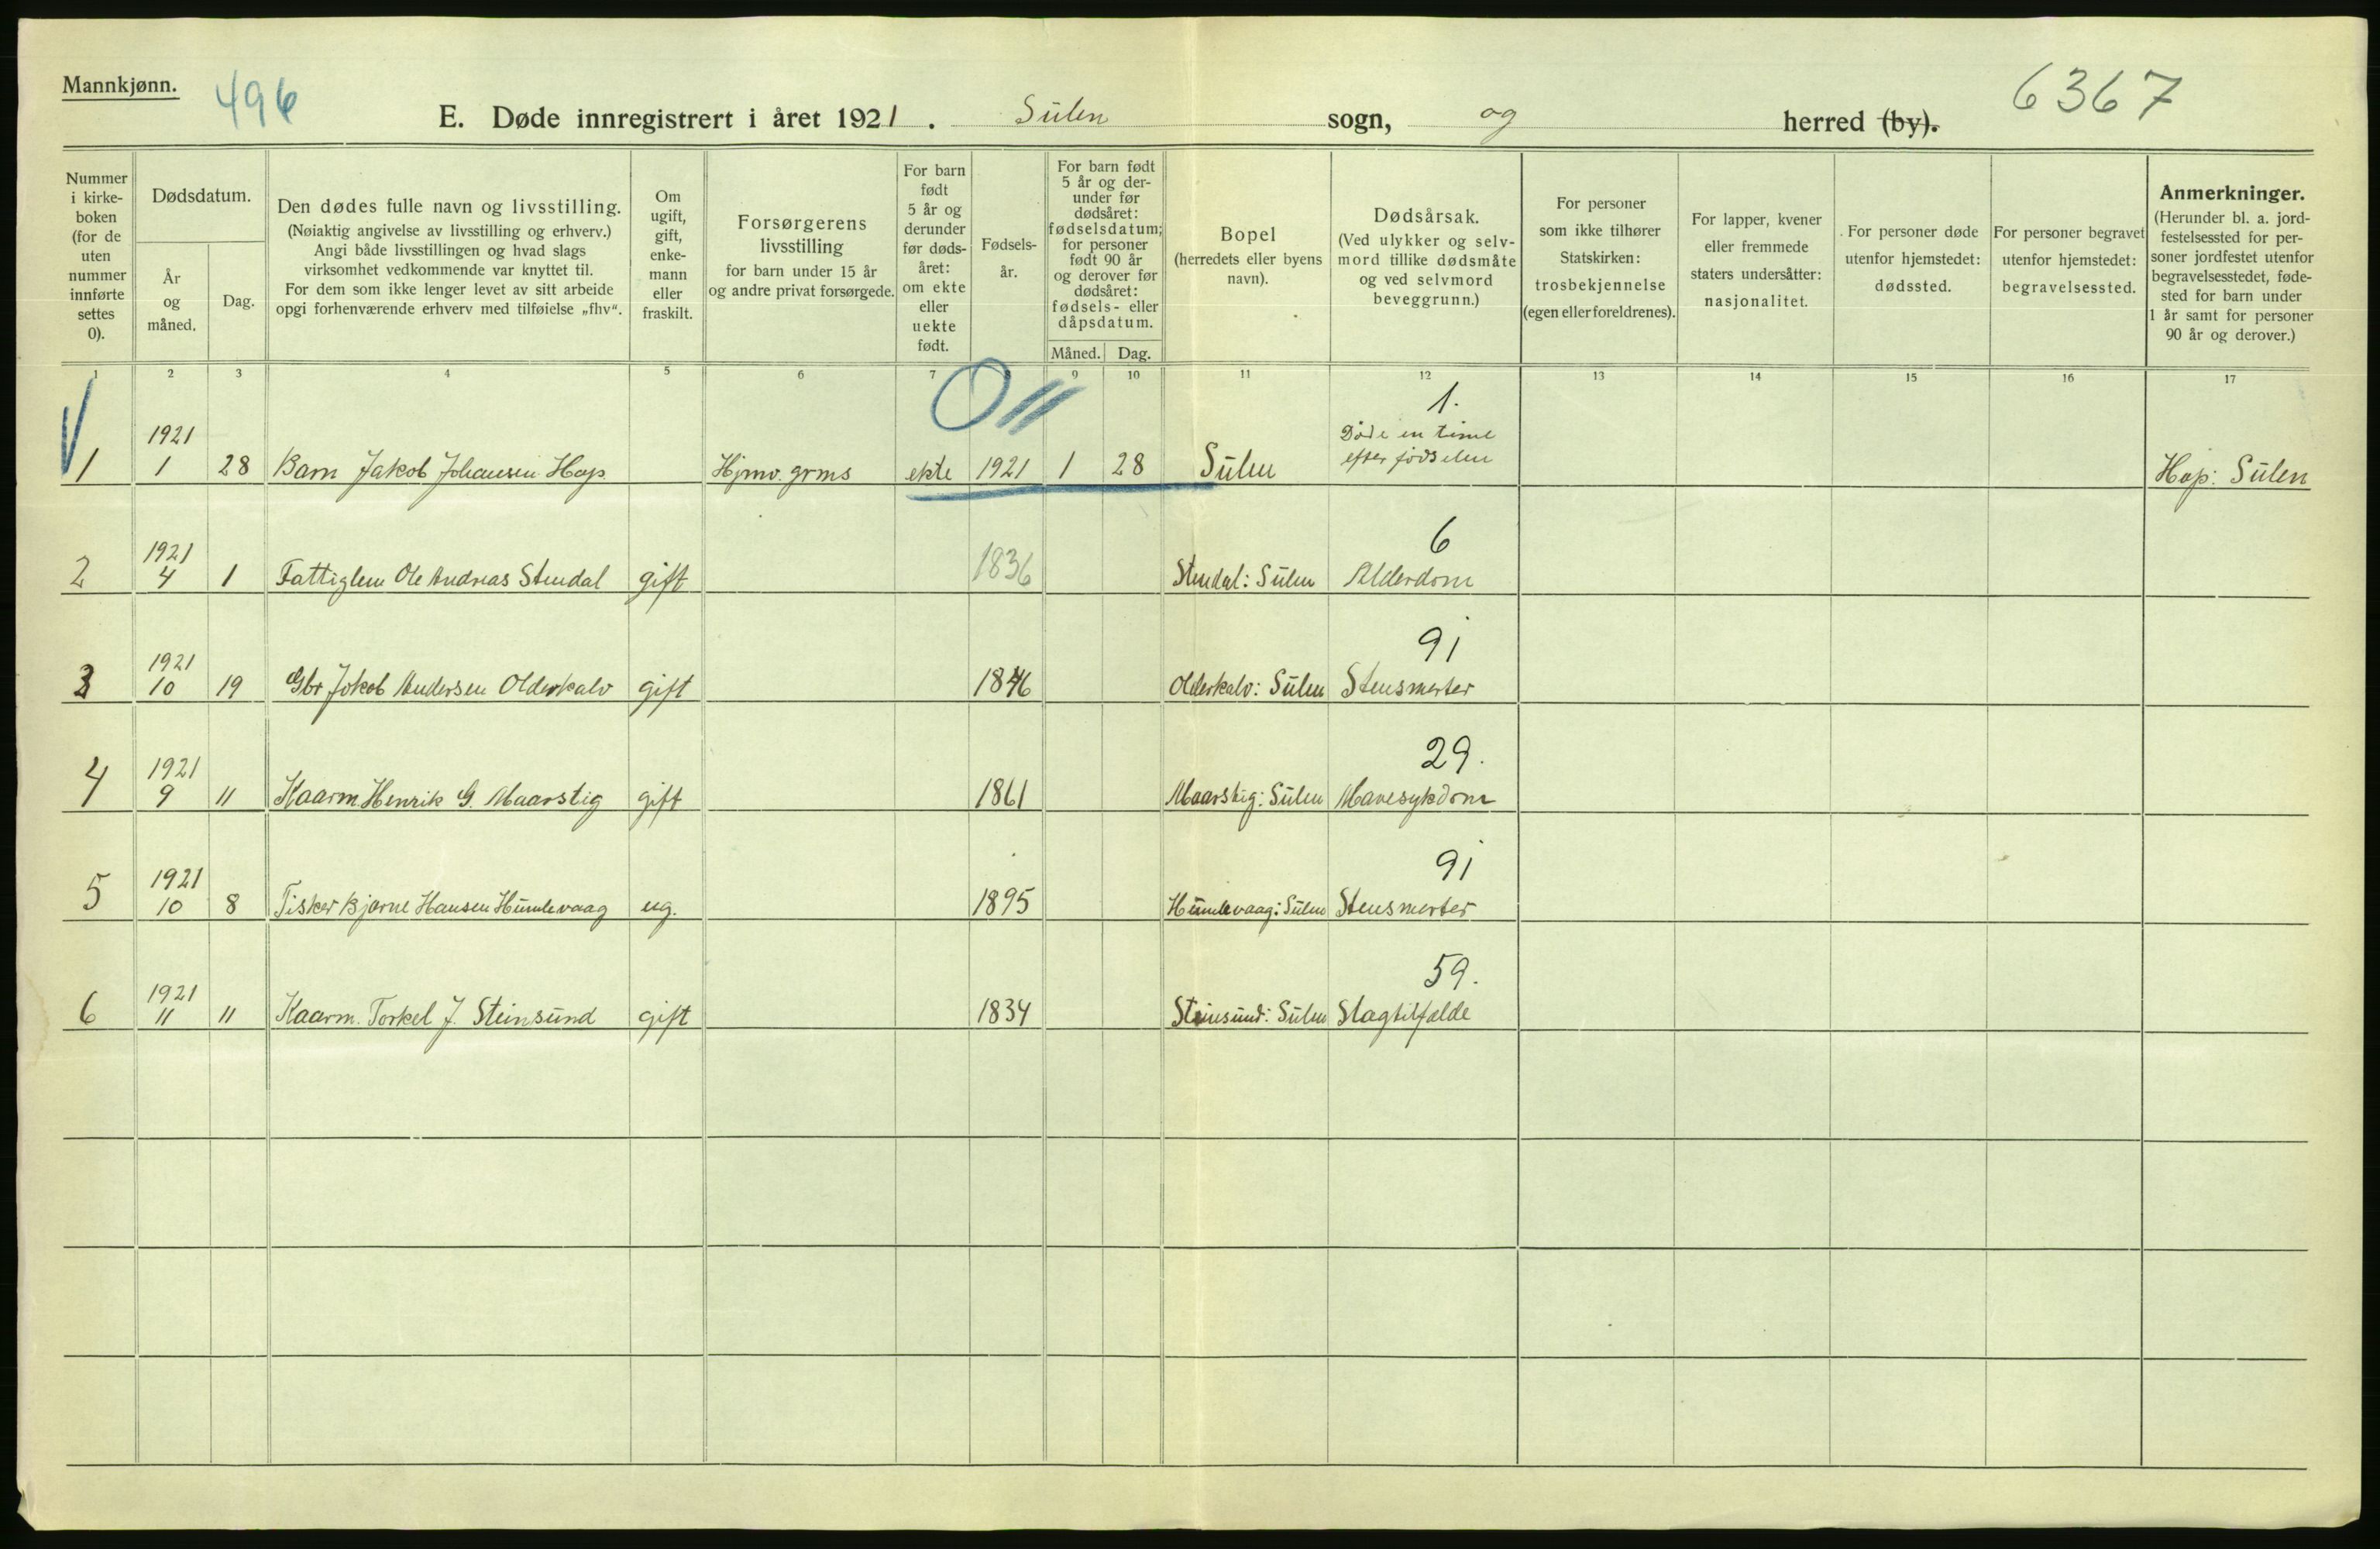 Mannkjønn.
496
6367
E. Døde innregistrert i året 1921. Sulen sogn, og herred (by).
Nummer
i kirke-
boken
(for de
uten
nummer
innførte
settes
0).
Dødsdatum.
År
og
måned.
Dag.
Den dødes fulle navn og livsstilling.
(Nøiaktig angivelse av livsstilling og erhverv.)
Angi både livsstillingen og hvad slags
virksomhet vedkommende var knyttet til.
For dem som ikke lenger levet av sitt arbeide
opgi forhenværende erhverv med tilføielse „fhv“.
Om
ugift,
gift,
enke-
mann
eller
fraskilt.
Forsørgerens
livsstilling
for barn under 15 år
og andre privat forsørgede.
For barn
født
5 år og
derunder
før døds-
året:
om ekte
eller
uekte
født.
Fødsels-
år.
For barn født
5 år og der-
under før
dødsåret:
fødselsdatum;
for personer
født 90 år
og derover før
dødsåret:
fødsels- eller
dåpsdatum.
Måned. Dag.
Bopel
(herredets eller byens
navn).
Dødsårsak.
(Ved ulykker og selv-
mord tillike dødsmåte
og ved selvmord
beveggrunn.)
For personer
som ikke tilhører
Statskirken:
trosbekjennelse
(egen eller foreldrenes).
For lapper, kvener
eller fremmede
staters undersåtter:
nasjonalitet.
For personer døde
utenfor hjemstedet:
dødssted.
For personer begravet
utenfor hjemstedet:
begravelsessted.
Anmerkninger.
(Herunder bl. a. jord-
festelsessted for per-
soner jordfestet utenfor
begravelsesstedet, føde-
sted for barn under
1 år samt for personer
90 år og derover.)
1 2 3 4 5 6 7 8 9 10 11 12 13 14 15 16 17
1.
1921 Døde en time
1 1 28 Barn Jakob Johansen Hop Hjmv. grms ekte 1921 1 28 Sulen efter fødselen Hop: Sulen
6
1921
2 4 1 Fattiglem Ole Andreas Stendal gift 1836 Stendal: Sulen Alderdom
91
1921
3 10 19 Gbr Jakob Andersen Olderkalv gift 1846 Olderkalv: Sulen Stensmerter
29.
1921
4 9 11 Kaarm. Henrik G. Maarstig gift 1861 Maarstig: Sulen Mavesykdom
91
1921
5 10 8 Fisker Bjarne Hansen Humlevaag ug. 1895 Humlevaag: Sulen Stensmerter
59.
1921
6 11 11 Kaarm. Torkel J. Steinsund gift 1834 Steinsund: Sulen Slagtilfælde